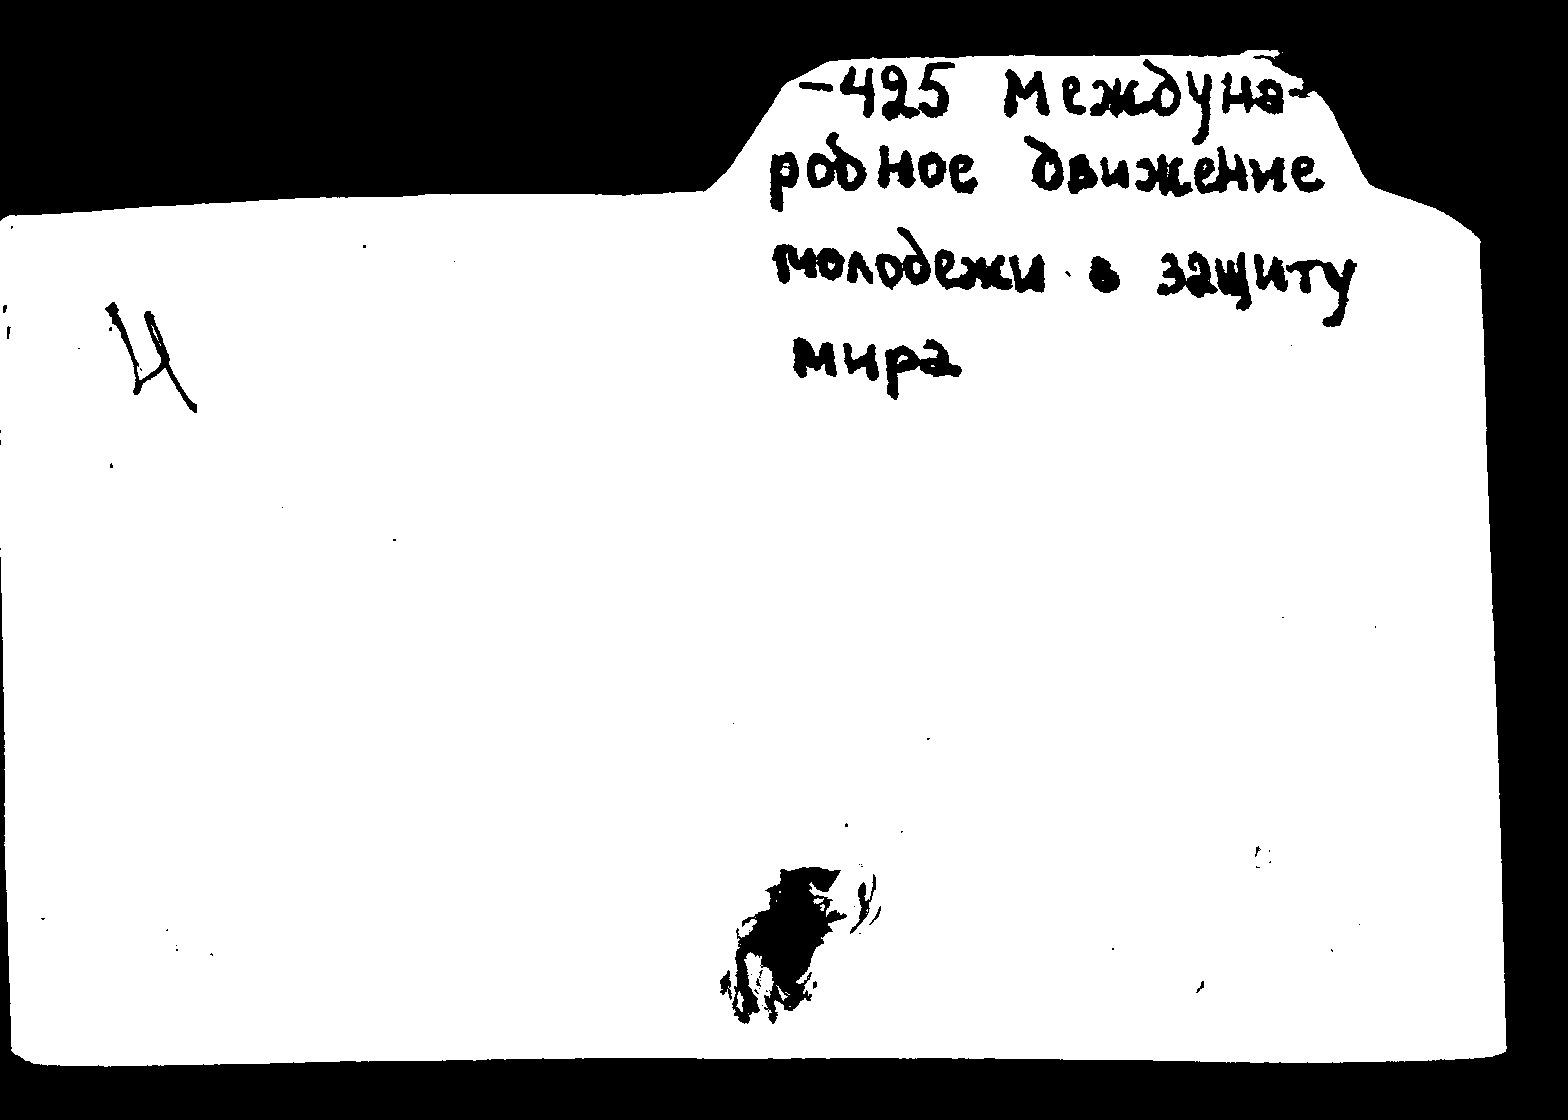 -425 Междуна-
родное движение
молодежи в защиту
мира
4